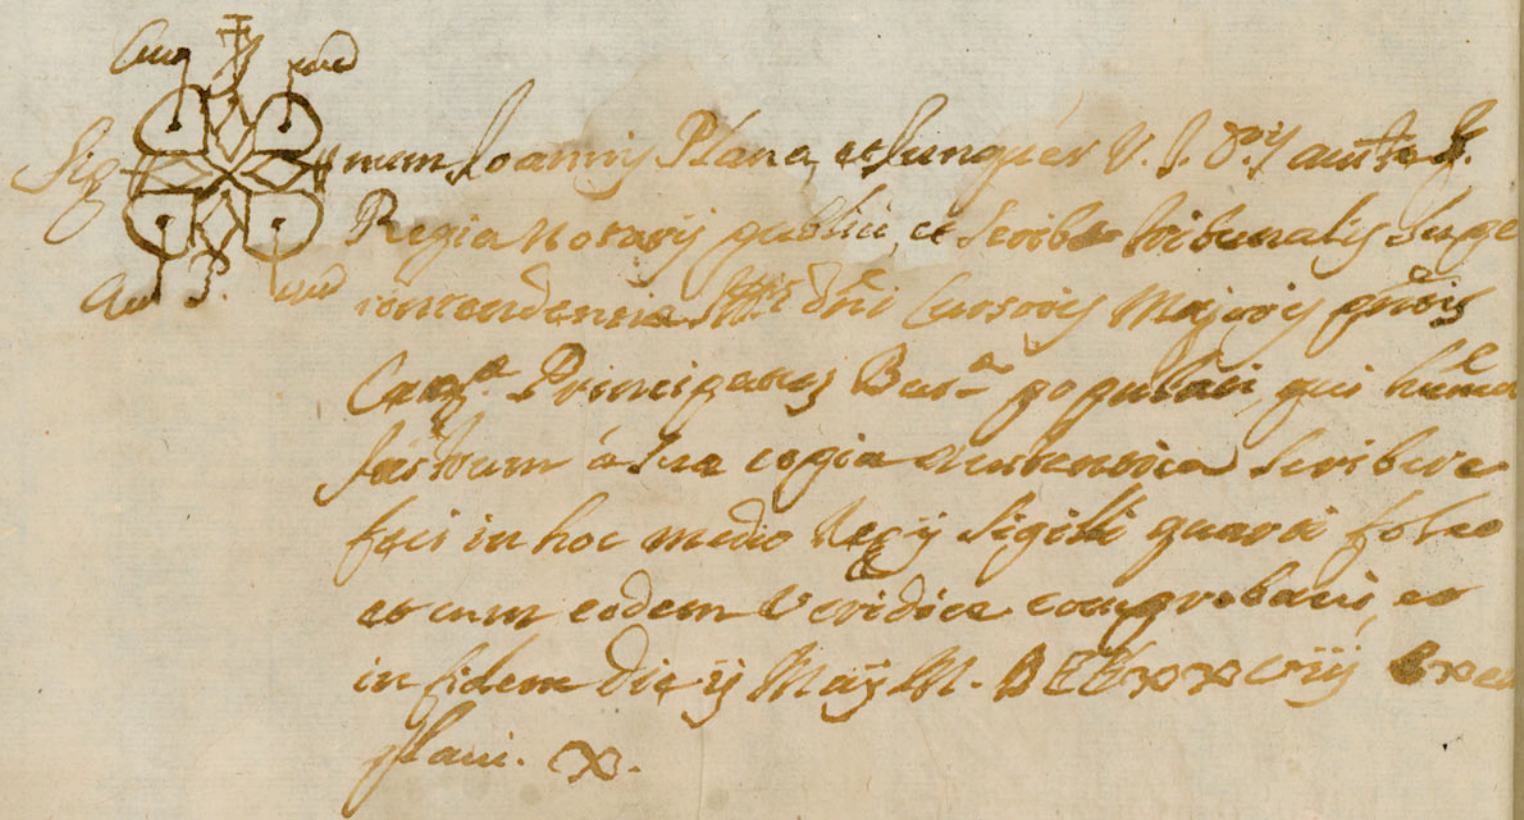 Sig num Joannis Plana, et Junquer V. J. D.ris auct.e S.
Regia Notarij publici, et Scriba tribunalis Supe
intendencia dñi Cursoris Majoris pñtis
Principatus Bar.ę populati, qui
á sua copia authentica scribere
feci in hoc medio Regij Sigilli quarti folio
et cum eodem Veridice comprobavi, et
in fidem die ij Maij M. DCCxxxviij
plavi. X.